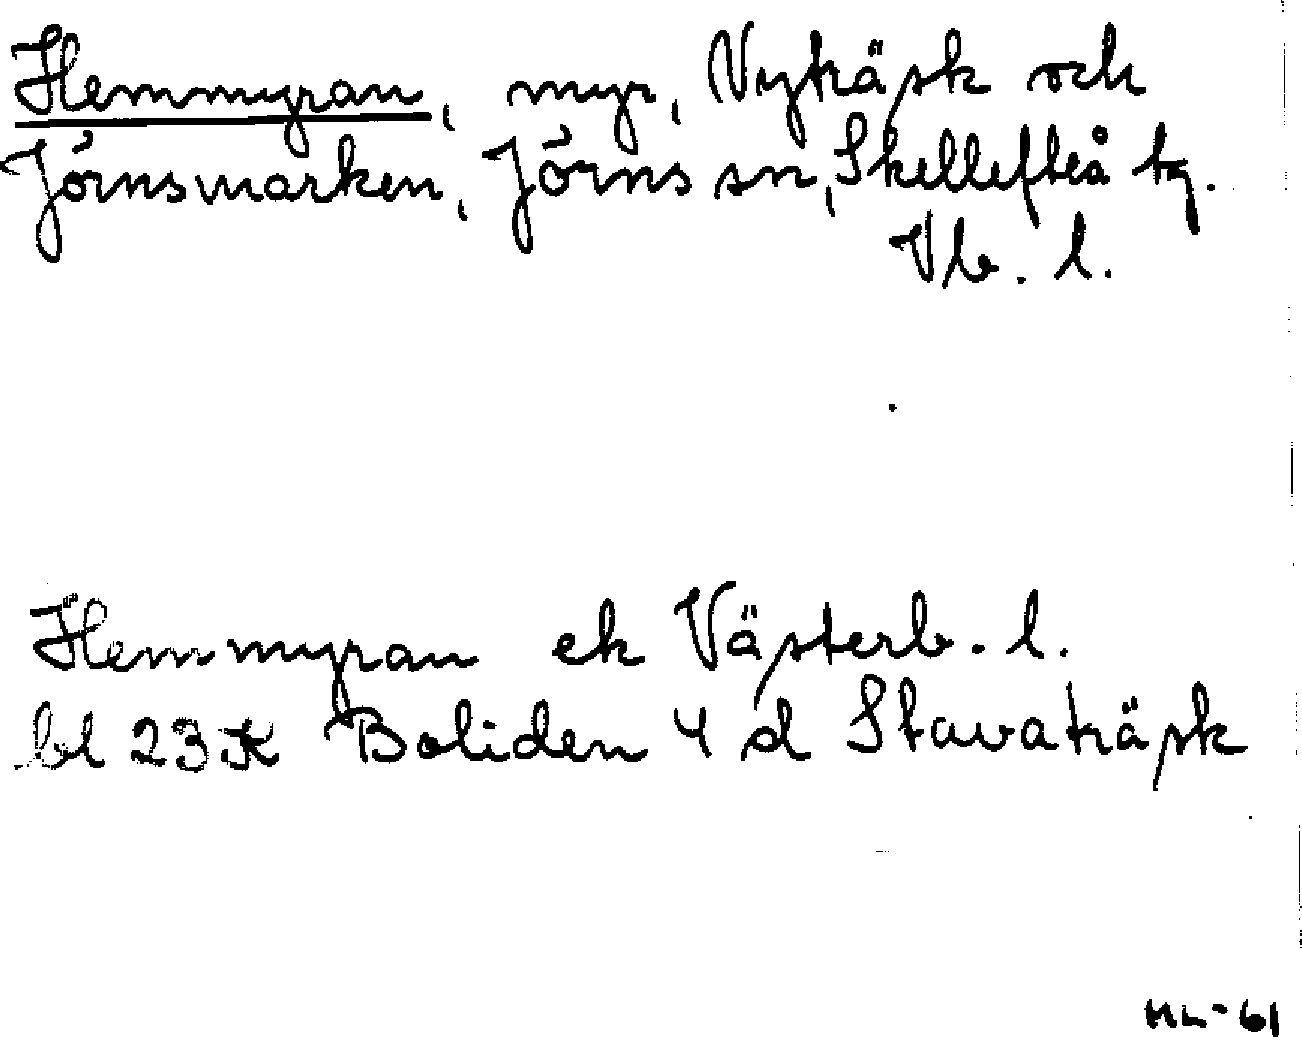 Hemmyran, myr, Vyträsk och
Jörnsmarken, Jörns sn, Skellefteå tg.
Vb. l.
Hemmyran ek Västerb. l.
bl 23 K Boliden 4 d Stavaträsk
ML-61